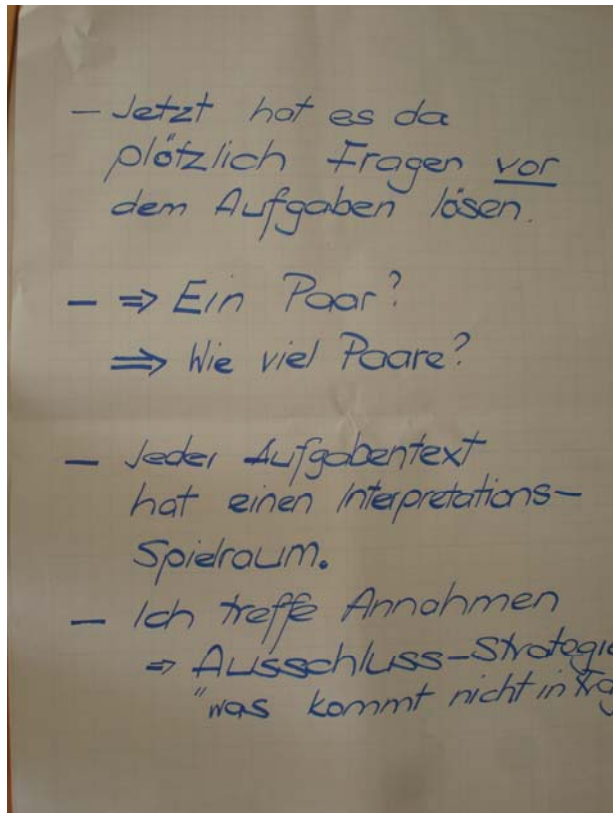 - Jetzt hat es da
plötzlich Fragen vor
dem Aufgaben lösen.
- ⇒ Ein Paar?
⇒ Wie viel Paare?
- Jeder Aufgabentext
hat einen Interpretations-
Spielraum.
- Ich treffe Annahmen
⇒ Ausschluss-Strategie
"was kommt nicht in